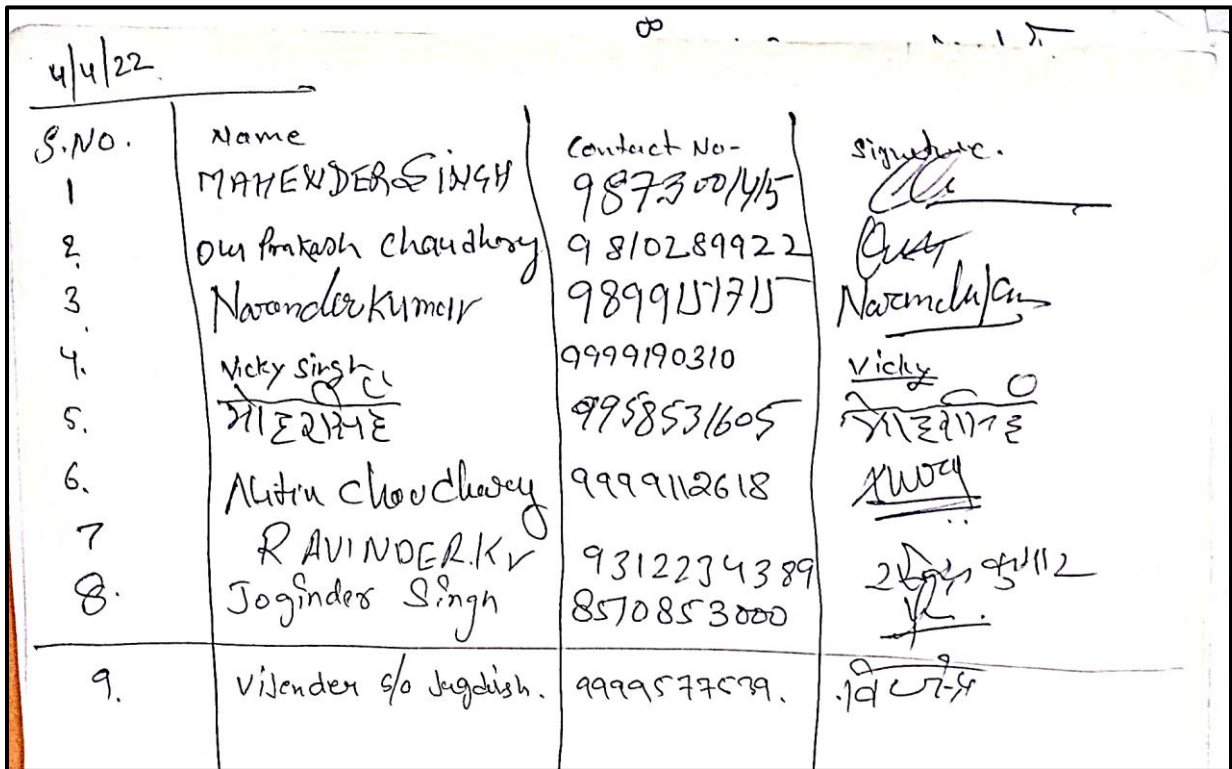 4/4/22
S.NO. Name Contact No- Signature.
1 MAHENDER SINGH 9873001415
2. Om Prakash Chaudhary 9810289922
3 Narender Kumar 9899151715
4. Vicky Singh 9999190310 Vicky
5. 9958531605
6. Nitin Choudharey 9999112618
7 RAVINDER.Kr 9312234389 कुमार
8. Joginder Singh 8570853000
9. Vijender s/o Jagdish. 9999577539. विजेन्द्र